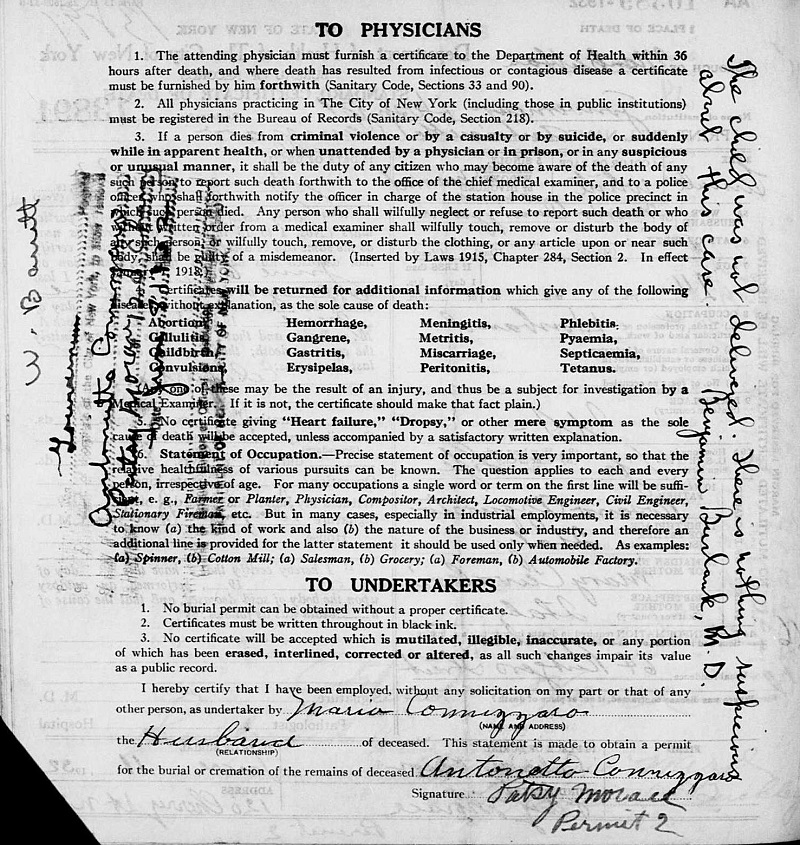 TO PHYSICIANS
1. The attending physician must furnish a certificate to the Department of Health within 36
hours after death, and where death has resulted from infectious or contagious disease a certificate
must be furnished by him forthwith (Sanitary Code, Sections 33 and 90).
2. All physicians practicing in The City of New York (including those in public institutions)
must be registered in the Bureau of Records (Sanitary Code, Section 218).
3. If a person dies from criminal violence or by a casualty or by suicide, or suddenly
while in apparent health, or when unattended by a physician or in prison, or in any suspicious
or unusual manner, it shall be the duty of any citizen who may become aware of the death of any
such person to report such death forthwith to the office of the chief medical examiner, and to a police
officer who shall forthwith notify the officer in charge of the station house in the police precinct in
which such person died. Any person who shall wilfully neglect or refuse to report such death or who
written order from a medical examiner shall wilfully touch, remove or disturb the body of
any such person, or wilfully touch, remove, or disturb the clothing, or any article upon or near such
body, shall be guilty of a misdemeanor. (Inserted by Laws 1915, Chapter 284, Section 2. In effect
1918.)
Certificates will be returned for additional information which give any of the following
diseases, without explanation, as the sole cause of death:
Abortion, Hemorrhage, Meningitis, Phlebitis,
Cellulitis, Gangrene, Metritis, Pyaemia,
Childbirth, Gastritis, Miscarriage, Septicaemia,
Convulsions, Erysipelas, Peritonitis, Tetanus.
(Any one of these may be the result of an injury, and thus be a subject for investigation by a
Medical Examiner. If it is not, the certificate should make that fact plain.)
No certificate giving “Heart failure,” “Dropsy,” or other mere symptom as the sole
cause of death will be accepted, unless accompanied by a satisfactory written explanation.
6. Statement of Occupation.—Precise statement of occupation is very important, so that the
relative healthfulness of various pursuits can be known. The question applies to each and every
person, irrespective of age. For many occupations a single word or term on the first line will be suffi-
cient, e. g., Farmer or Planter, Physician, Compositor, Architect, Locomotive Engineer, Civil Engineer,
Stationary Fireman, etc. But in many cases, especially in industrial employments, it is necessary
to know (a) the kind of work and also (b) the nature of the business or industry, and therefore an
additional line is provided for the latter statement it should be used only when needed. As examples:
(a) Spinner, (b) Cotton Mill; (a) Salesman, (b) Grocery; (a) Foreman, (b) Automobile Factory.
TO UNDERTAKERS
1. No burial permit can be obtained without a proper certificate.
2. Certificates must be written throughout in black ink.
3. No certificate will be accepted which is mutilated, illegible, inaccurate, or any portion
of which has been erased, interlined, corrected or altered, as all such changes impair its value
as a public record.
I hereby certify that I have been employed, without any solicitation on my part or that of any
other person, as undertaker by Mario Connizzaro
(NAME AND ADDRESS)
the Husband of deceased. This statement is made to obtain a permit
(RELATIONSHIP)
for the burial or cremation of the remains of deceased Antonetta Connizzaro
Signature Patsy
Permit 2
The child was not delivered. There is nothing suspicious
about this case. Benjamin Burbank, M. D.
W. Barrett